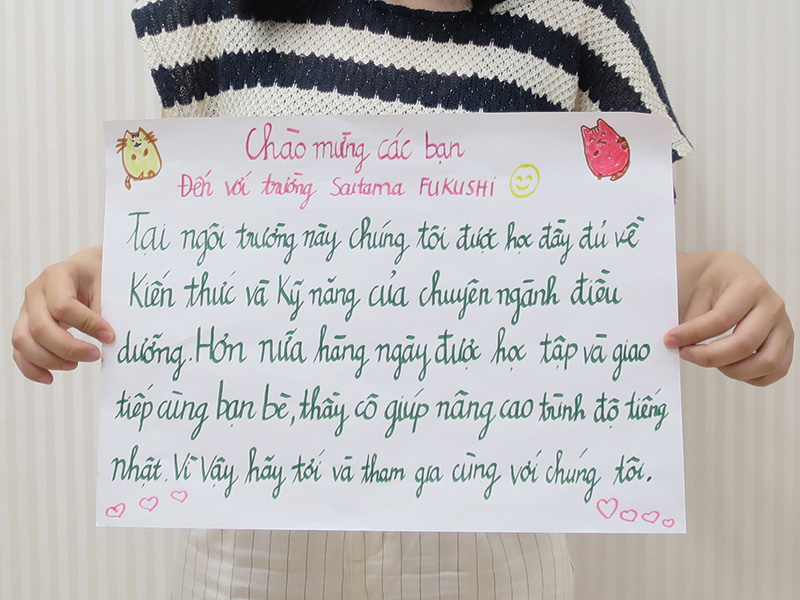 Chào mừng các bạn
Đến với trường Saitama FUKUSHI
Tại ngôi trường này chúng tôi được học đầy đủ về
Kiến thức và Kỹ năng của chuyên ngành điều
dưỡng. Hơn nữa hàng ngày được học tập và giao
tiếp cùng bạn bè, thầy cô giúp nâng cao trình độ tiếng
nhật. Vì vậy hãy tới và tham gia cùng với chúng tôi.